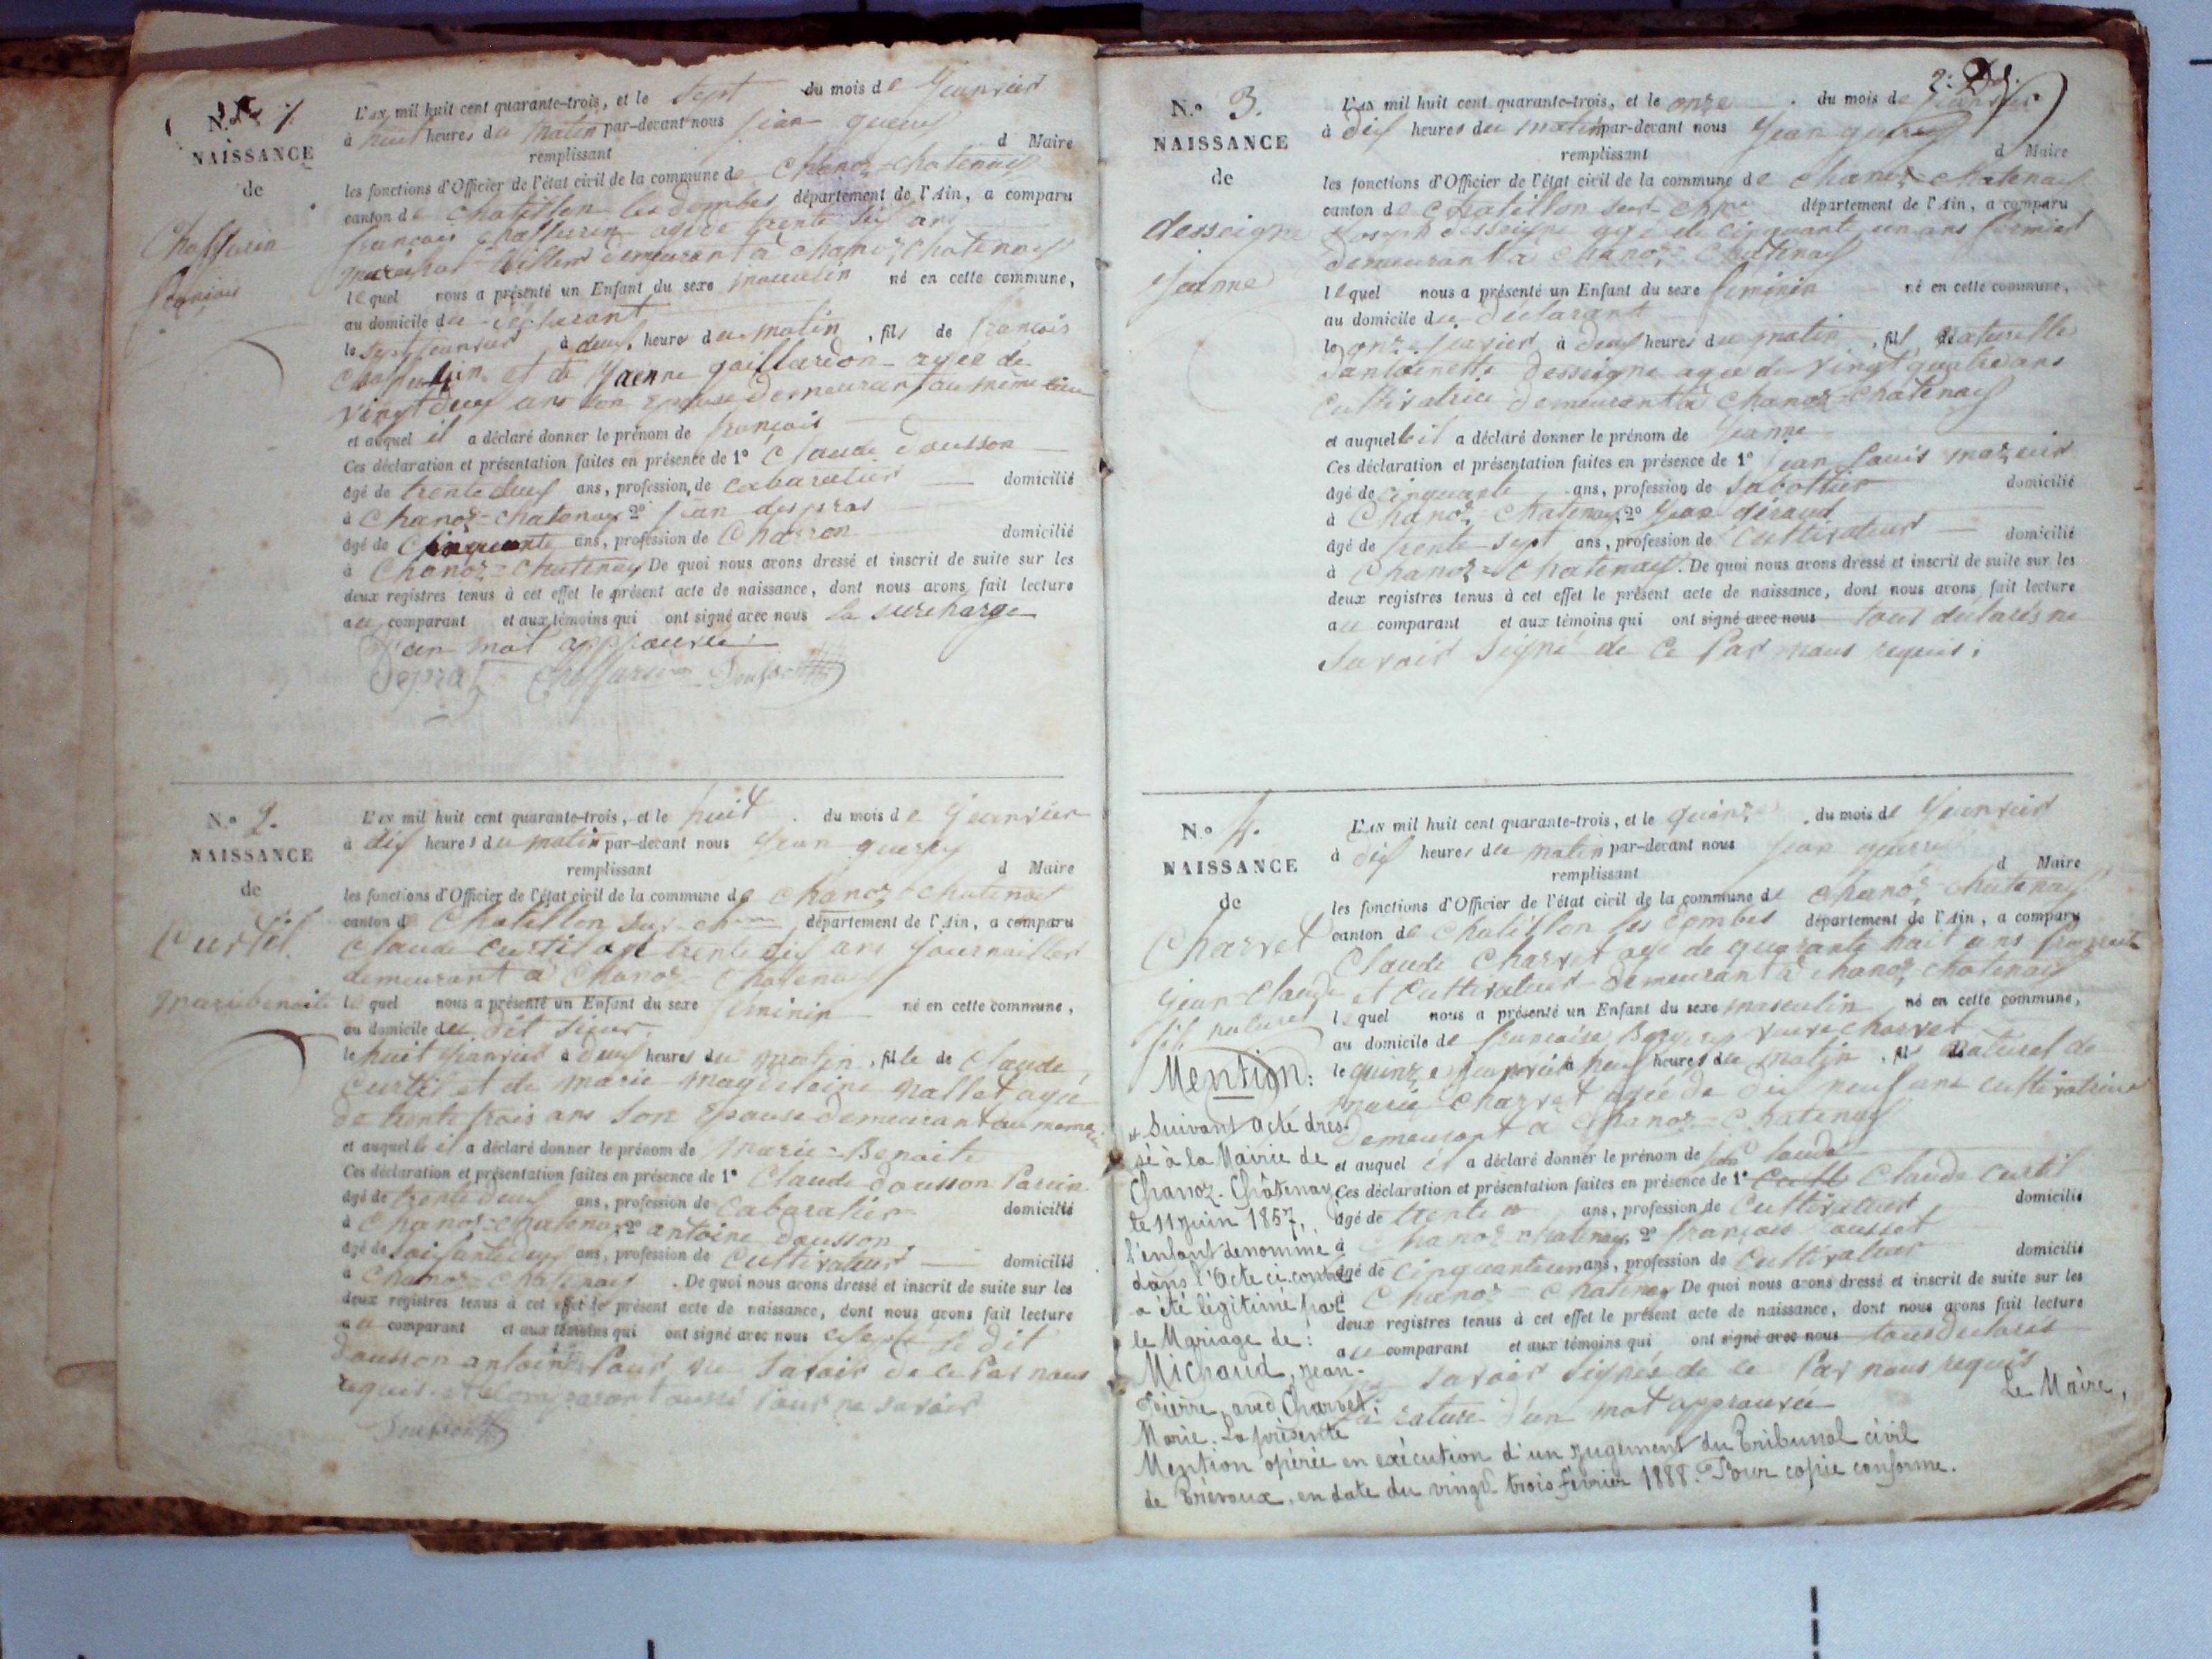 N.º 1
NAISSANCE
de
Chaffurin
François
L'an mil huit cent quarante-trois, et le sept du mois de Janvier
à huit heures du matin par-devant nous Jean
remplissant d Maire
les fonctions d'Officier de l'état civil de la commune de Chanoz-chatenay
canton de Chatillon les dombes département de l'Ain, a comparu
françois chaffurin agé de trente six ans
demeurant à chanoz, chatenay
lequel nous a présenté un Enfant du sexe masculin né en cette commune,
au domicile du déclarant
le sept janvier à deux heures du matin, fils de françois
et de Jaenne gaillardon agée de
vingt deux ans son epouse demeurant au même lieu
et auquel il a déclaré donner le prénom de françois
Ces déclaration et présentation faites en présence de 1º Claude dousson
âgé de trente deux ans, profession de cabaretier domicilié
à Chanoz-chatenay 2º jean despras
âgé de cinquante ans, profession de Charron domicilié
à Chanoz-Chatenay De quoi nous avons dressé et inscrit de suite sur les
deux registres tenus à cet effet le présent acte de naissance, dont nous avons fait lecture
au comparant et aux témoins qui ont signé avec nous la surcharge
d'un mot approuvée
N.º 2.
NAISSANCE
de
Curtil.
marie benoite
L'an mil huit cent quarante-trois, et le huit du mois de Janvier
à dix heures du matin par-devant nous Jean
remplissant d Maire
les fonctions d'Officier de l'état civil de la commune de Chanoz-chatenay
canton de Chatillon sur ch département de l'Ain, a comparu
Claude Curtil agé trente six ans Journaillier
demeurant à Chanoz-Chatenay
lequel nous a présenté un Enfant du sexe feminin né en cette commune,
au domicile du dit sieur
le huit janvier à deux heures du matin, fille de Claude
Curtil et de marie magdeleine mallet agée
de trente trois ans son Epouse demeurant au meme
et auquelle il a déclaré donner le prénom de Marie-Benoite
Ces déclaration et présentation faites en présence de 1º Claude dousson
âgé de trente deux ans, profession de Cabaratier domicilié
à Chanoz-chatenay 2º antoine dousson
âgé de soixante deux ans, profession de Cultivateur domicilié
à Chanoz-Chatenay. De quoi nous avons dressé et inscrit de suite sur les
deux registres tenus à cet effet le présent acte de naissance, dont nous avons fait lecture
au comparant et aux témoins qui ont signé avec nous excepté le dit
dousson antoine Pour ne savoir de ce Par nous
requis. et le Comparant aussi Pour ne savoir
N.º 3.
NAISSANCE
de
desseigne
Jeanne
L'an mil huit cent quarante-trois, et le onze du mois de Janvier
à dix heures du matin par-devant nous Jean
remplissant d Maire
les fonctions d'Officier de l'état civil de la commune de Chanoz-Chatenay
canton de Chatillon sur département de l'Ain, a comparu
Joseph desseigne agé de cinquante un ans fermier
demeurant à Chanoz-Chatenay
lequel nous a présenté un Enfant du sexe feminin né en cette commune,
au domicile du déclarant
le onze janvier à deux heures du matin, fil naturelle
d'antoinette desseigne agée de vingt quatre ans
cultivatrice demeurant à Chanoz-Chatenay
et auquelle il a déclaré donner le prénom de Jeanne
Ces déclaration et présentation faites en présence de 1º jean Louis mazuir
âgé de cinquante ans, profession de sabottier domicilié
à Chanoz-Chatenay, 2º Jean géraud
âgé de trente-sept ans, profession de Cultivateur domicilié
à Chanoz-Chatenay. De quoi nous avons dressé et inscrit de suite sur les
deux registres tenus à cet effet le présent acte de naissance, dont nous avons fait lecture
au comparant et aux témoins qui ont signé avec nous tous déclarés ne
savoir signé de ce Par nous requis;
N.º 4.
NAISSANCE
de
Charvet
Jean-Claude
fils naturel
L'an mil huit cent quarante-trois, et le quinze du mois de Janvier
à dix heures du matin par-devant nous Jean
remplissant d Maire
les fonctions d'Officier de l'état civil de la commune de Chanoz, Chatenay
canton de Chatillon les dombes département de l'Ain, a comparu
Claude Charvet agé de quarante huit ans
et Cultivateur demeurant à chanoz, chatenay
lequel nous a présenté un Enfant du sexe masculin né en cette commune,
au domicile de francoise veuve charvet
le quinze janvier à neuf heures du matin, fils naturel de
marie Charvet agée de dix neuf ans cultivatrice
demeurant à Chanoz-Chatenay
et auquel il a déclaré donner le prénom de jean Claude
Ces déclaration et présentation faites en présence de 1º Claude Curtil
âgé de trente ans, profession de Cultivateur domicilié
à Chanoz chatenay, 2º françois dousset
âgé de cinquante un ans, profession de Cultivateur domicilié
à Chanoz-Chatenay De quoi nous avons dressé et inscrit de suite sur les
deux registres tenus à cet effet le présent acte de naissance, dont nous avons fait lecture
au comparant et aux témoins qui ont signé avec nous tous déclarés
savoir signés de ce Par nous requis
la rature d'un mot approuvée
Mention:
Suivant acte dres-
sé à la Mairie de
Chanoz-Châtenay
le 11 juin 1857,
l'enfant dénommé
dans l'acte ci-contre
a été légitimé par
le Mariage de:
Michaud, Jean-
Pierre, avec Charvet,
Marie. La présente
Mention opérée en exécution d'un jugement du Tribunal civil
de Trévoux, en date du vingt-trois février 1888. Pour copie conforme.
Le Maire,